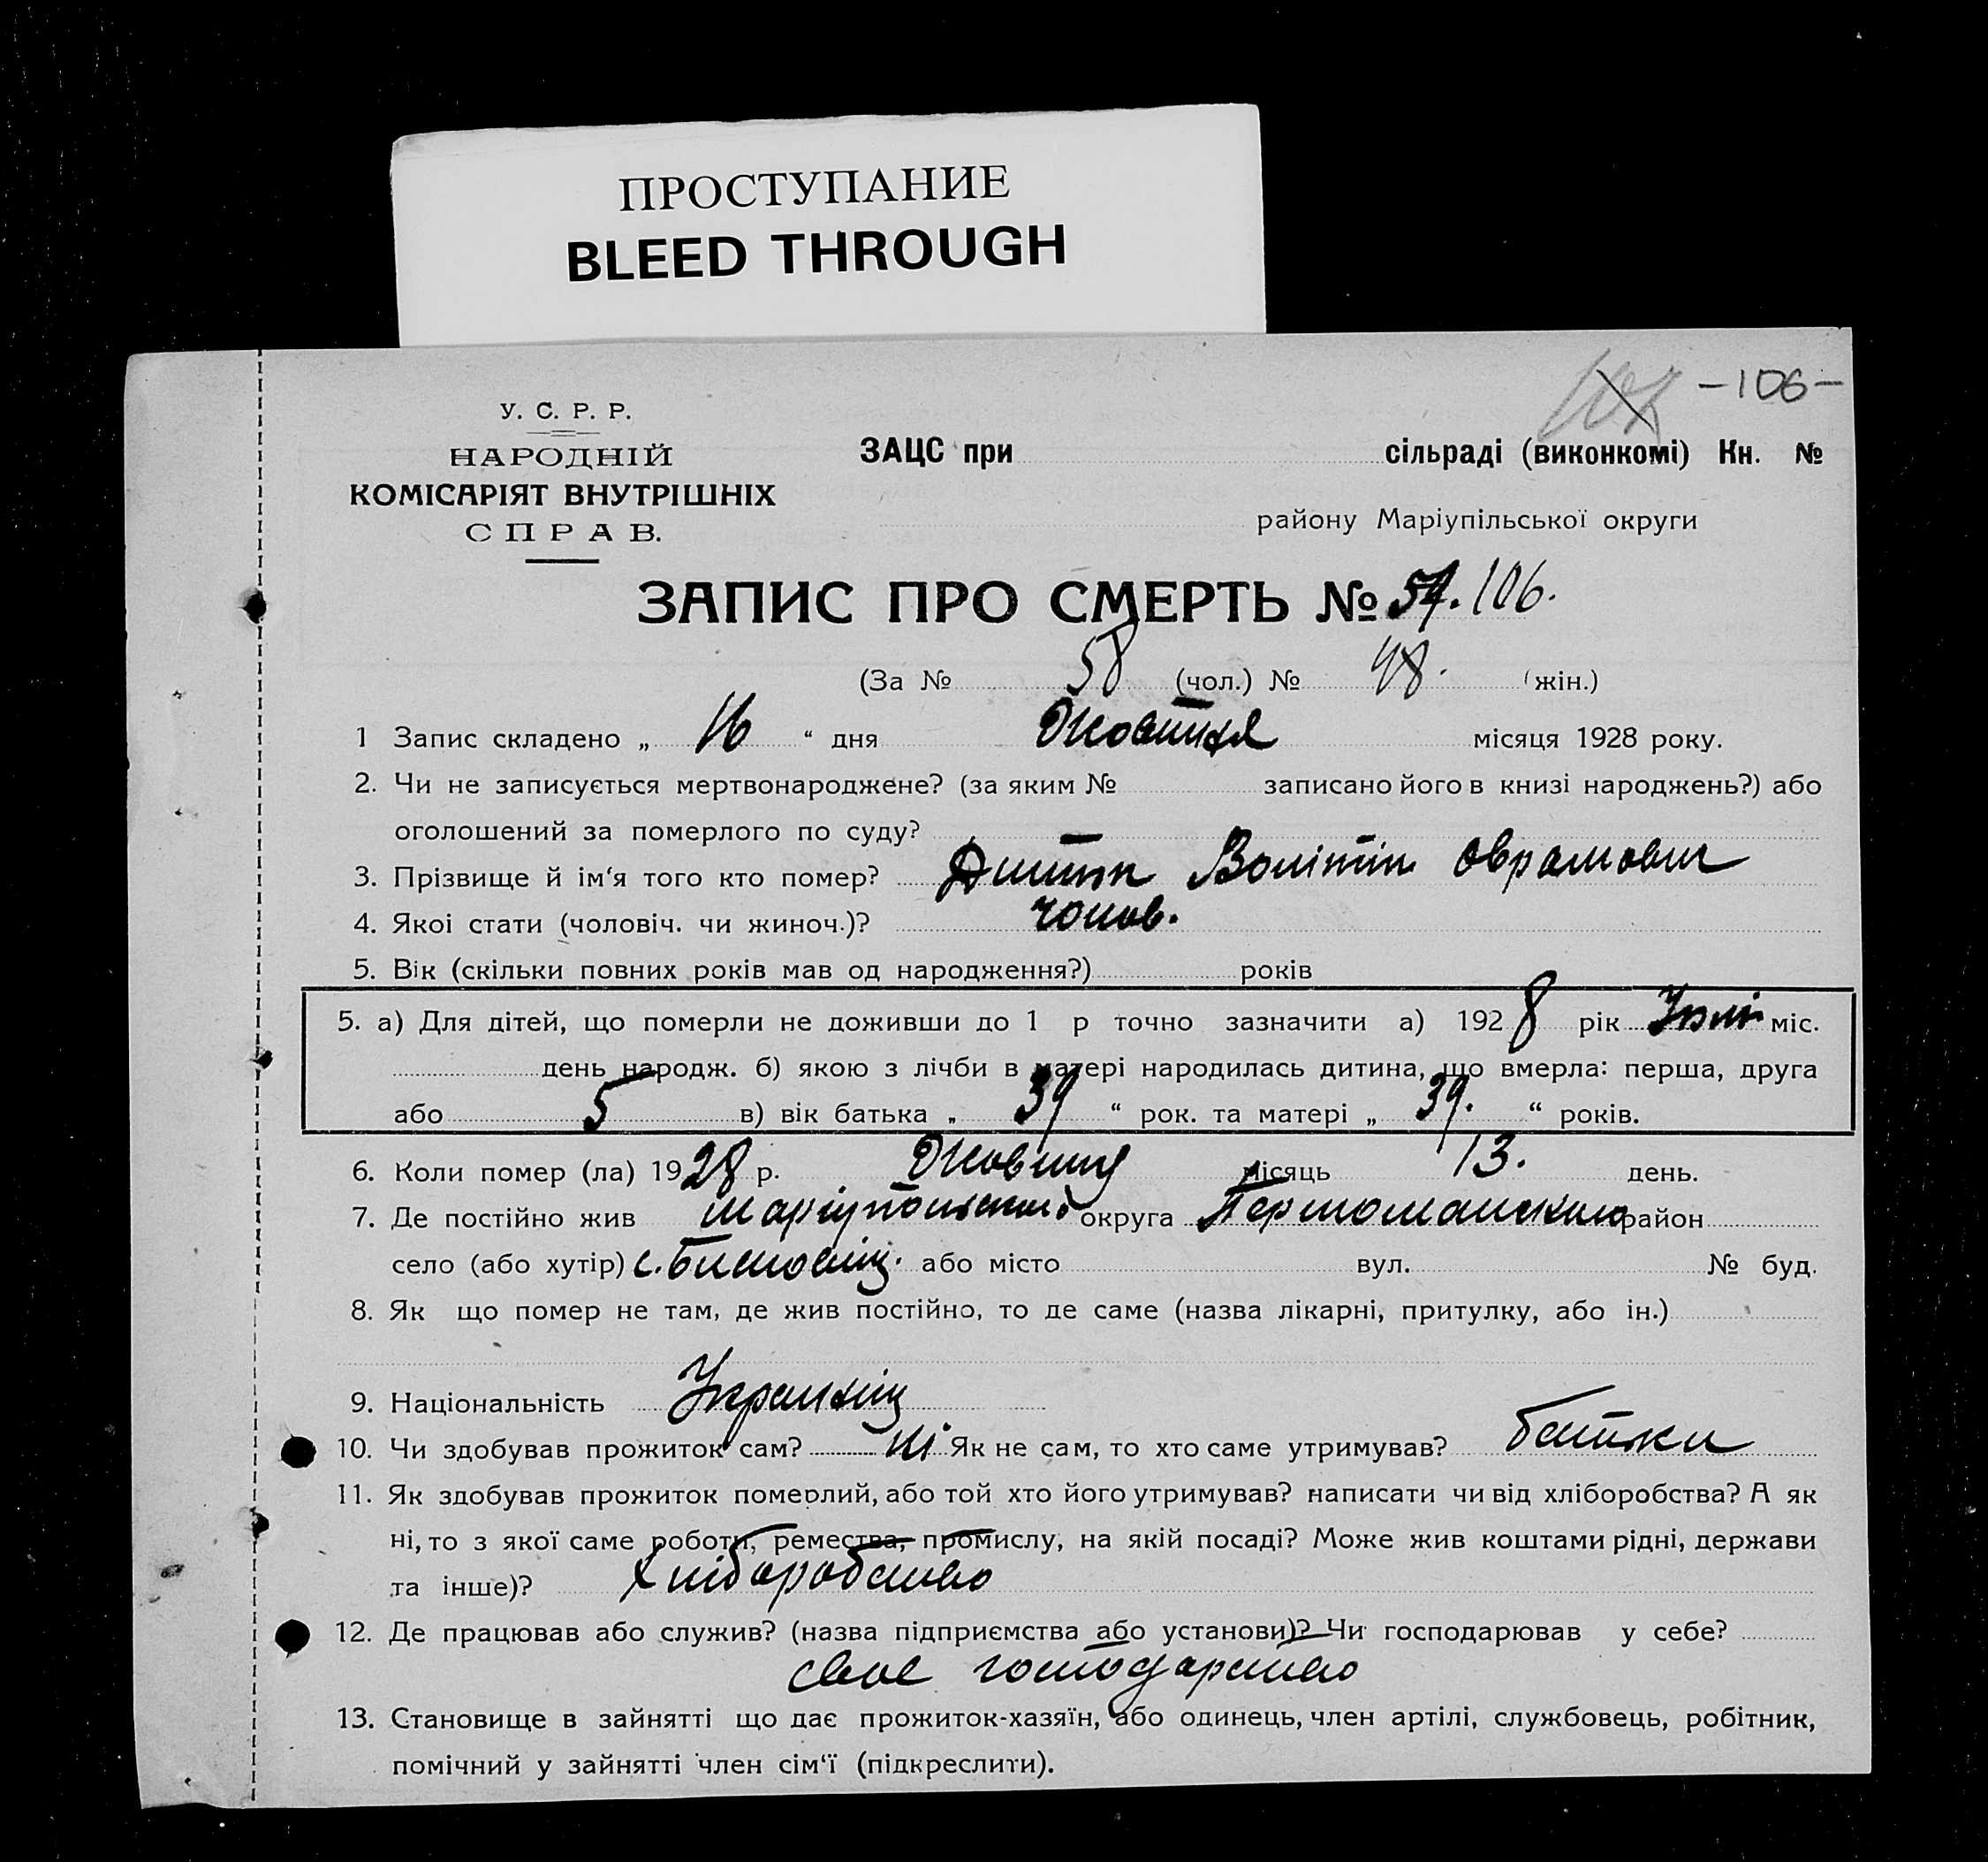 ПРОСТУПАНИЕ
BLEED THROUGH
107 -106-
У. С. Р. Р.
НАРОДНІЙ
КОМІСАРІЯТ ВНУТРІШНІХ
СПРАВ.
ЗАЦС при сільраді (виконкомі) Кн. №
району Маріупільської округи
ЗАПИС ПРО СМЕРТЬ № 57. 106.
(За № 58 (чол.) № 48. (жін.)
1 Запис складено „ 16 “ дня Жовтня місяця 1928 року.
2. Чи не записується мертвонароджене? (за яким № записано його в книзі народжень?) або
оголошений за померлого по суду?
3. Прізвище й ім‘я того кто помер? Оврамович
4. Якоі стати (чоловіч. чи жиноч.)? чолов.
5. Вік (скільки повних років мав од народження?) років
5. а) Для дітей, що померли не доживши до 1 р точно зазначити а) 1928 рік міс.
день народж. б) якою з лічби в матері народилась дитина, що вмерла: перша, друга
або 5 в) вік батька „ 39 “ рок. та матері „ 39. “ років.
6. Коли помер (ла) 1928 р. Жовтня місяць 13. день.
7. Де постійно жив Маріупольської округа район
село (або хутір) с. або місто вул. № буд.
8. Як що помер не там, де жив постійно, то де саме (назва лікарні, притулку, або ін.)
9. Національність Українці
10. Чи здобував прожиток сам? ні Як не сам, то хто саме утримував? батьки
11. Як здобував прожиток померлий, або той хто його утримував? написати чи від хліборобства? А як
ні, то з якої саме роботи, ремества, промислу, на якій посаді? Може жив коштами рідні, держави
та інше)? Хліборобство
12. Де працював або служив? (назва підприємства або установи)? Чи господарював у себе?
своє господарство
13. Становище в зайнятті що дає прожиток-хазяїн, або одинець, член артілі, службовець, робітник,
помічний у зайнятті член сім‘ї (підкреслити).